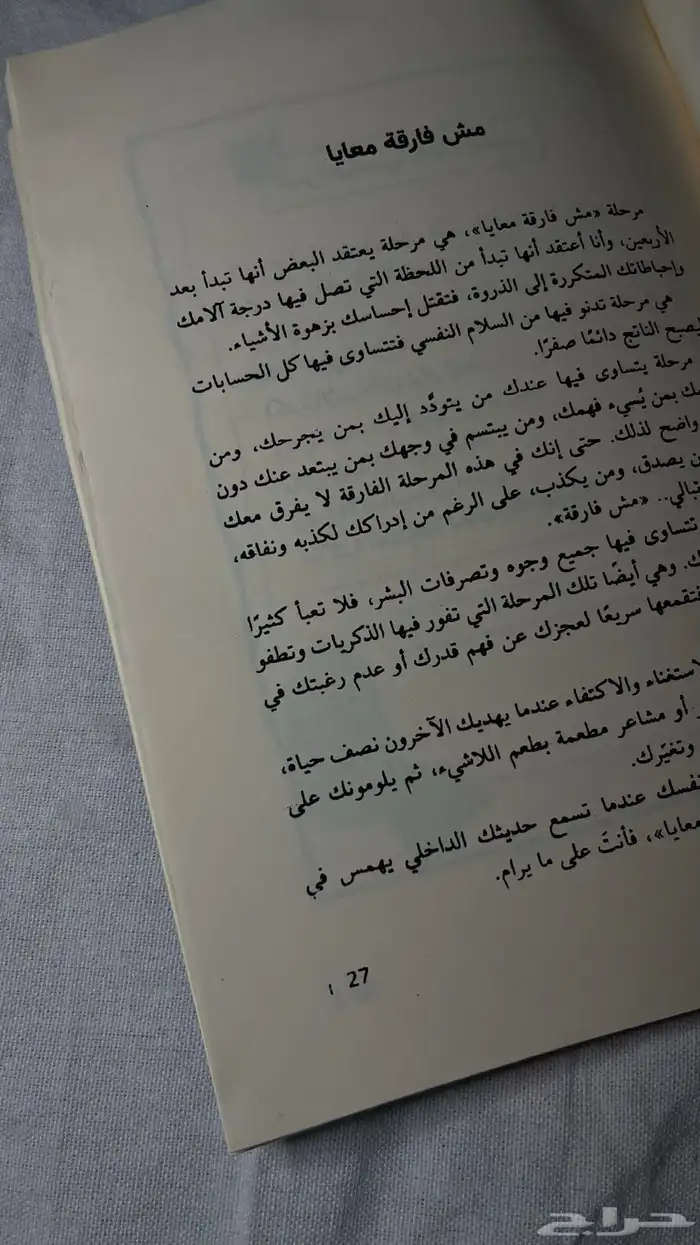 مش فارقة معايا
مرحلة «مش فارقة معايا»، هي مرحلة يعتقد البعض أنها تبدأ بعد
الأربعين، وأنا أعتقد أنها تبدأ من اللحظة التي تصل فيها درجة آلامك
وإحباطاتك المتكررة إلى الذروة، فتقتل إحساسك بزهوة الأشياء.
هي مرحلة تدنو فيها من السلام النفسي فتتساوى فيها كل الحسابات
ليصبح الناتج دائمًا صفرًا.
مرحلة يتساوى فيها عندك من يتودَّد إليك بمن يجرحك، ومن
بمن يُسيء فهمك، ومن يبتسم في وجهك بمن يبتعد عنك دون
واضح لذلك. حتى إنك في هذه المرحلة الفارقة لا يفرق معك
يصدق، ومن يكذب، على الرغم من إدراكك لكذبه ونفاقه،
«مش فارقة».
تتساوى فيها جميع وجوه وتصرفات البشر، فلا تعبأ كثيرًا
وهي أيضًا تلك المرحلة التي تفور فيها الذكريات وتطفو
فتقمعها سريعًا لعجزك عن فهم قدرك أو عدم رغبتك في
والاكتفاء عندما يهديك الآخرون نصف حياة،
أو مشاعر مطعمة بطعم اللاشيء، ثم يلومونك على
وتغيّرك.
عندما تسمع حديثك الداخلي يهمس في
معايا»، فأنتَ على ما يرام.
27
حراج